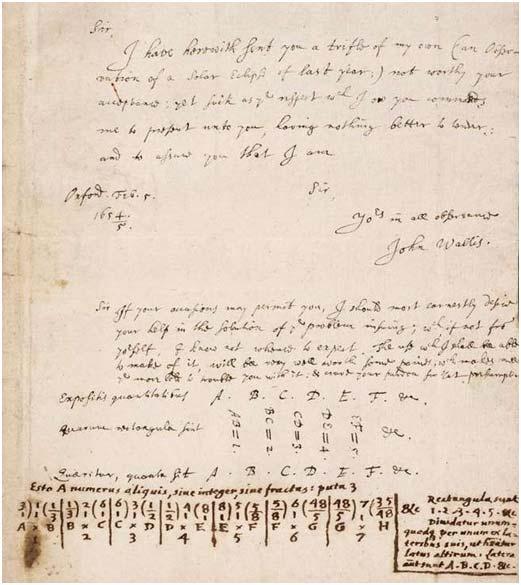 Sir,
I have herewith sent you a trifle of my own (an Obser-
vation of a Solar Eclipse of last year;) not worthy your
acceptance; yet such as yᵉ respect wᶜʰ I ow you commands
me to present unto you, having nothing better to tender;
and to assure you that I am
Sir,
Oxford. Feb. 5.
165 4/5.
Yoʳˢ in all observance
John Wallis.
Sir If your occasions may permit you, I should most earnestly desire
your help in the solution of yᵉ problem insuing; wᶜʰ if not frō
yoʳself, I know not whence to expect. The use wᶜʰ I shall be able
to make of it, will be very well worth some paines; wᶜʰ makes mee
yᵉ more bold to trouble you with it, & crave your pardon for
Expositis quantitatibus A . B . C . D . E . F . &c.
Quarum rectangula sint AB=1. BC=2. CD=3. DE=4. EF=5. &c.
Quæritur, quanta sit A . B . C . D . E . F . &c.
Esto A numerus aliquis, sive integer, sive fractus: puta 3
A × B × C × D × E × F × G × H &c
1 2 3 4 5 6 7
Rectangula sunt
1 . 2 . 3 . 4 . 5 . &c
Dividatur unum-
quodq per unum ex la-
teribus suis, ut habeatur
latus alterum. Latera
aut sunt A . B . C . D . &c.